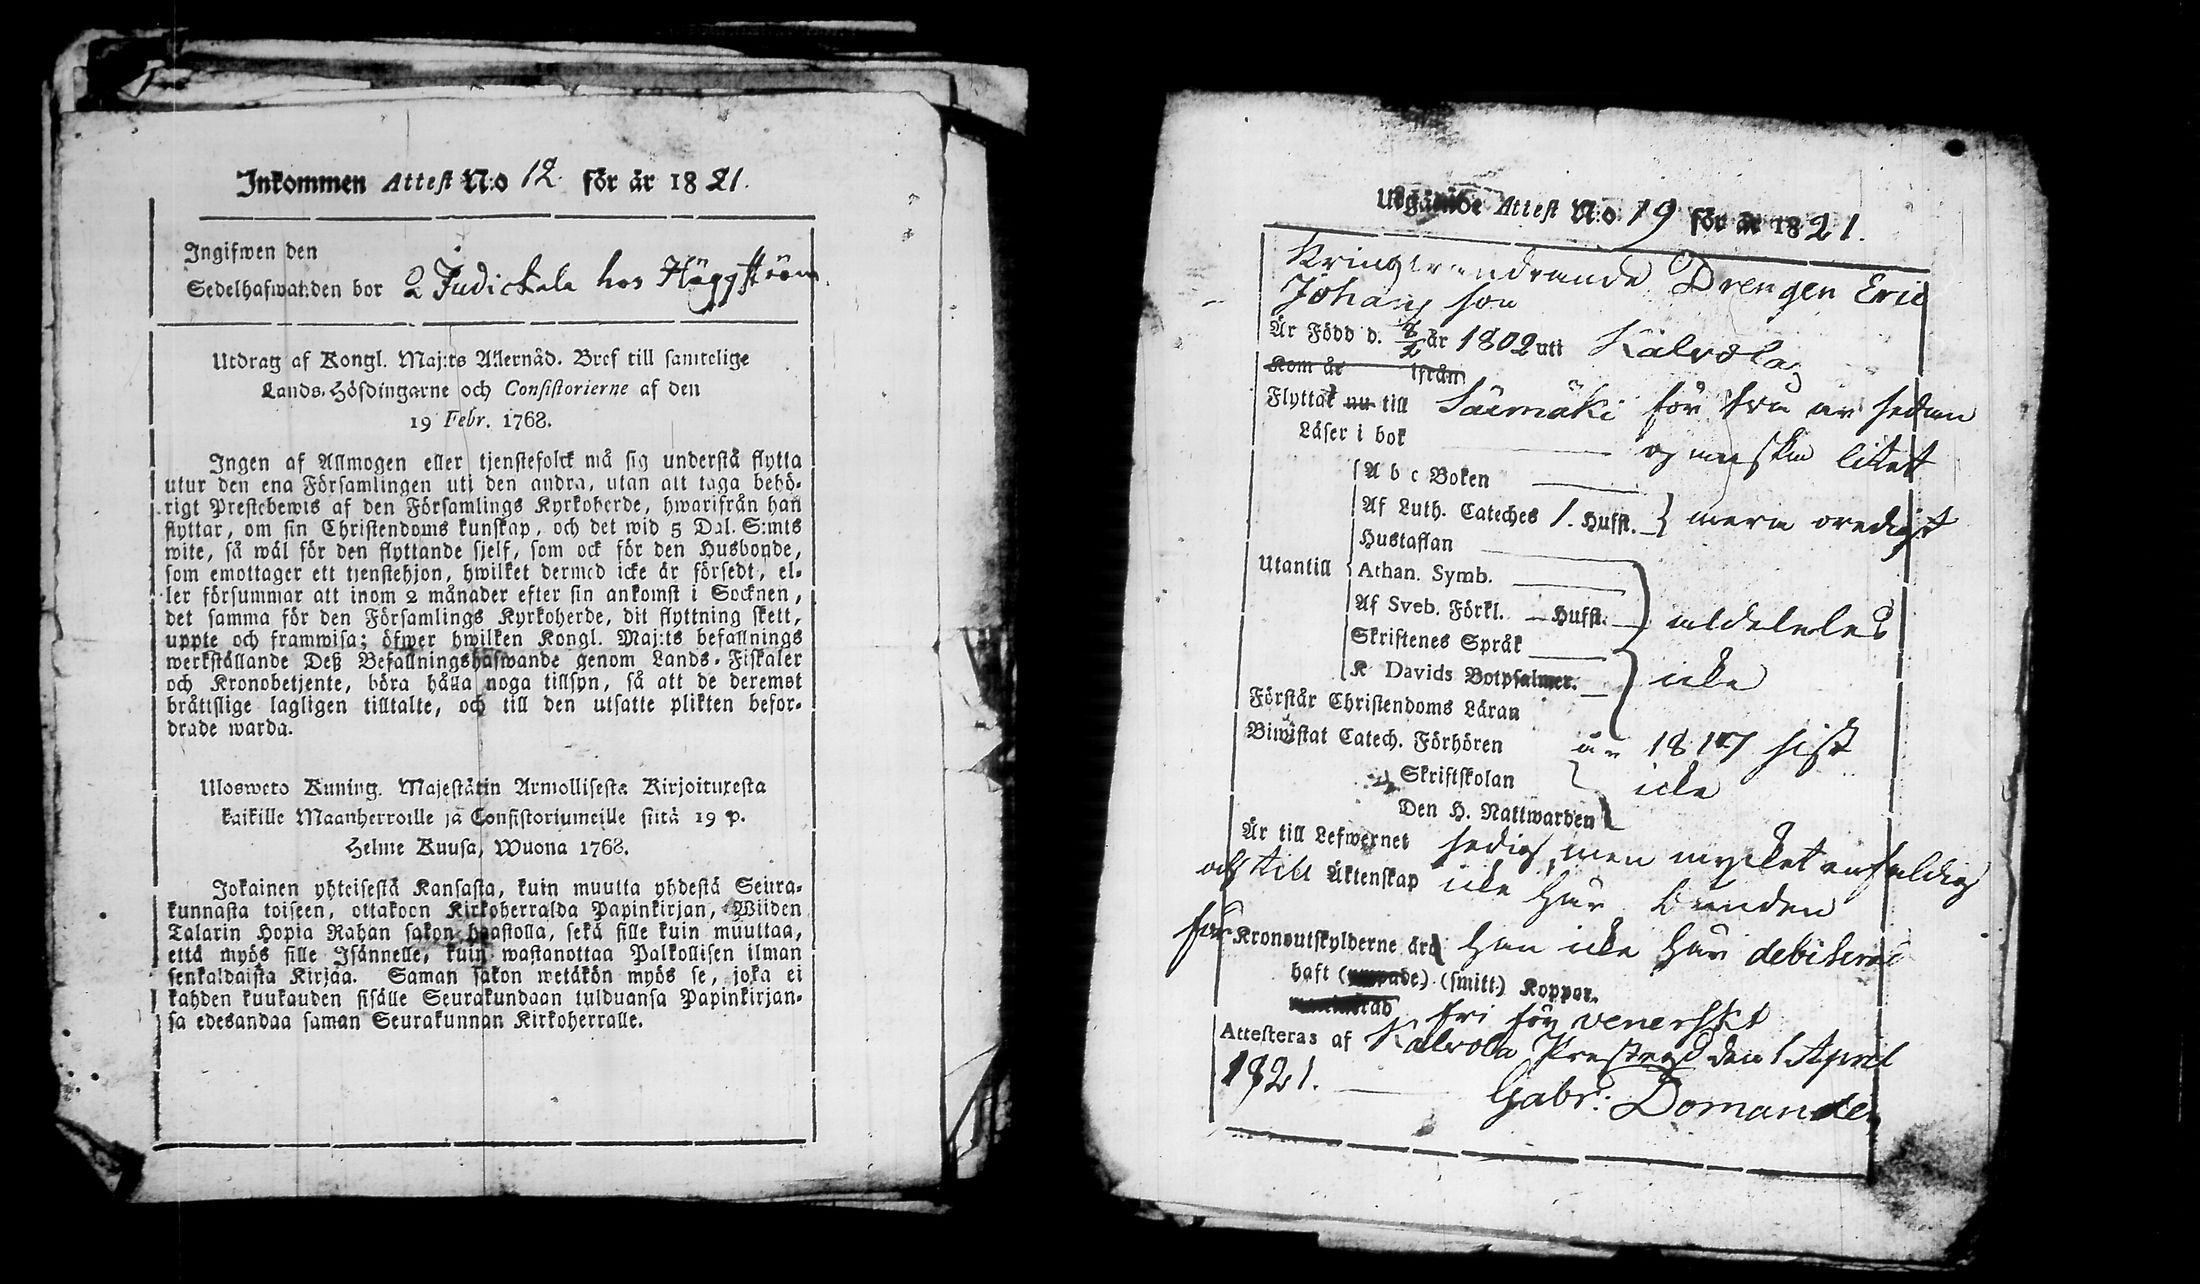 Inkommen Attest N:o 12 för år 1821.
Ingifwen den
Sedelhafwanden bor hos Häggström
Utdrag af Kongl. Maj:ts Allernåd. Bref till samtelige
Lands-Höfdingarne och Consistorierne af den
19 Febr. 1768.
Ingen af Allmogen eller tjenstefolck må sig understå flytta
utur den ena Församlingen uti den andra, utan att taga behö-
rigt Prestebewis af den Församlings Kyrkoherde, hwarifrån han
flyttar, om sin Christendoms kunskap, och det wid 5 Dal. S:mts
wite, så wäl för den flyttande sjelf, som ock för den Husbonde,
som emottager ett tjenstehjon, hwilket dermed icke är försedt, el-
ler försummar att inom 2 månader efter sin ankomst i Socknen,
det samma för den Församlings Kyrkoherde, dit flyttning skett,
uppte och framwisa; öfwer hwilken Kongl. Maj:ts befallnings
werkställande Deß Befallningshafwande genom Lands-Fiskaler
och Kronobetjente, böra hålla noga tillsyn, så att de deremot
bråttslige lagligen tilltalte, och till den utsatte plikten befor-
drade warda.
Ulosweto Kuning. Majestätin Armollisesta Kirjoituxesta
kaikille Maanherroille ja Consistoriumeille siitä 19 p.
Helme Kuusa, Wuona 1768.
Jokainen yhteisestä Kansasta, kuin muutta yhdestä Seura-
kunnasta toiseen, ottakoon Kirkoherralda Papinkirjan, Wiiden
Talarin Hopia Rahan sakon haastolla, sekä sille kuin muuttaa,
että myös sille Isännelle, kuin wastanottaa Palkollisen ilman
senkaldaista Kirjaa. Saman sakon wetäkön myös se, joka ei
kahden kuukauden sisälle Seurakundaan tulduansa Papinkirjan-
sa edesandaa saman Seurakunnan Kirkoherralle.
Utgående Attest N:o 19 för år 1821.
Kringvandrande Drengen Eric
Johans son
Är Född d. 8/2 år 1802 uti Kalvola
Kom år ifrån
Flyttat nu till för två år sedan
Läser i bok ganska litet
A b c Boken
Af Luth. Cateches 1. Hufst. mera oredigt
Hustaflan
Utantill Athan. Symb.
Af Sveb. Förkl. Hufst. aldeleles
Skriftenes Språk
K Davids Botpsalmer. icke
Förstår Christendoms Läran
Biwistat Catech. Förhören år 1817 sist
Skriftskolan icke
Den H. Nattwarden
Är till Lefwernet sedig, men mycket enfaldig
och till Äktenskap icke här bunden
för Kronoutskylderne är han icke här debiterad
haft (smitt.) Koppor.
fri för veneriskt
Attesteras af Kalvola Prestegd den 1 April
1821.
Gabr: Domander